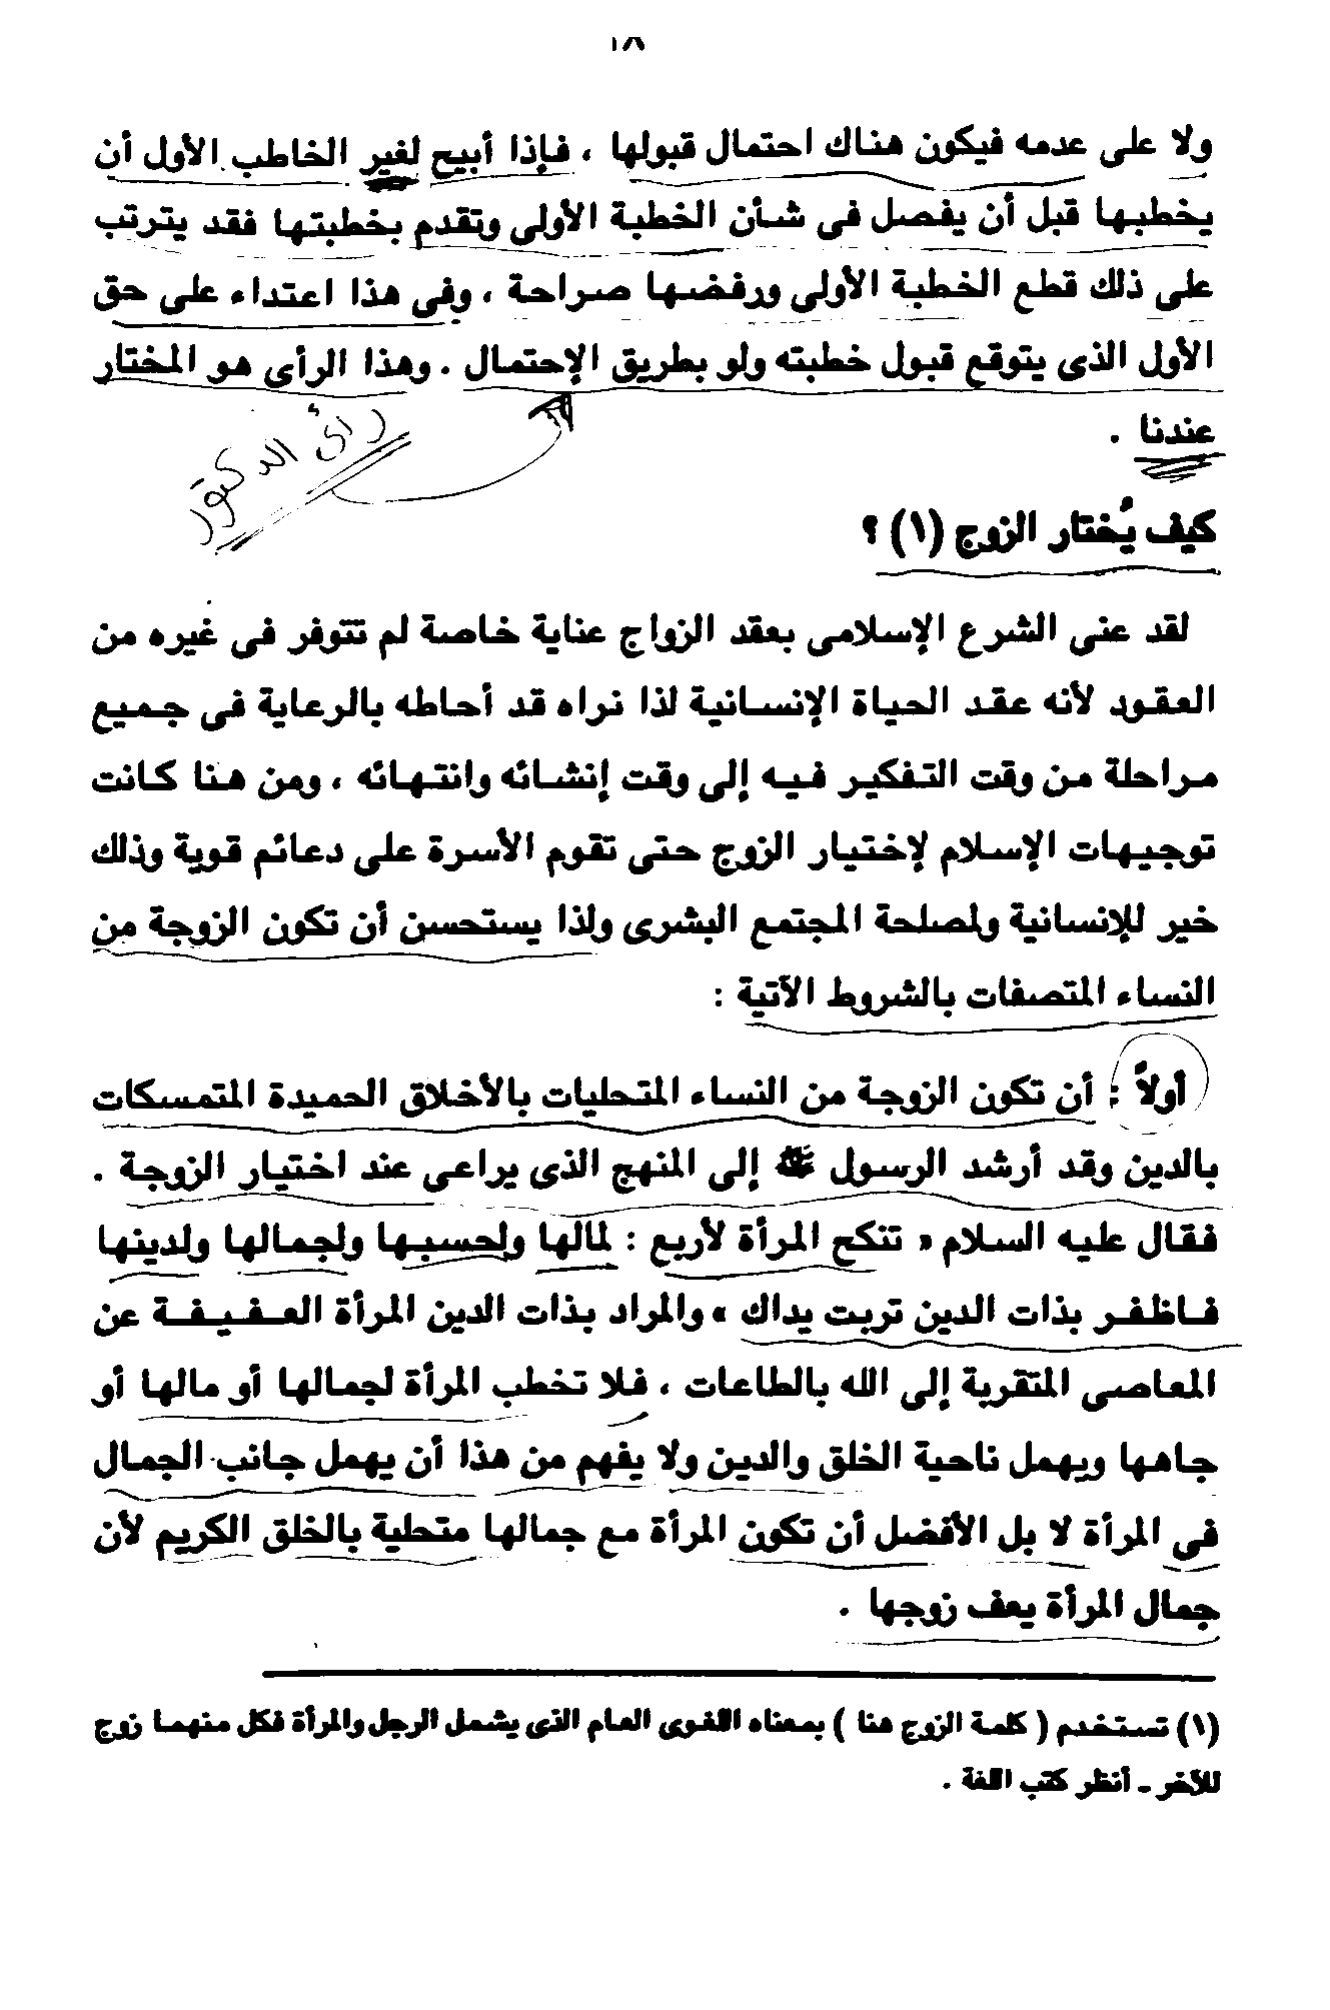 ١٨
ولا على عدمه فيكون هناك احتمال قبولها ، فإذا أبيح لغير الخاطب الأول أن
يخطبها قبل أن يفصل فى شأن الخطبة الأولى وتقدم بخطبتها فقد يترتب
على ذلك قطع الخطبة الأولى ورفضها صراحة ، وفى هذا اعتداء على حق
الأول الذى يتوقع قبول خطبته ولو بطريق الإحتمال . وهذا الرأى هو المختار
عندنا .
رأى الدكتور
كيف يُختار الزوج (١) ؟
لقد عنى الشرع الإسلامى بعقد الزواج عناية خاصة لم تتوفر فى غيره من
العقود لأنه عقد الحياة الإنسانية لذا نراه قد أحاطه بالرعاية فى جميع
مراحلة من وقت التفكير فيه إلى وقت إنشائه وانتهائه ، ومن هنا كانت
توجيهات الإسلام لإختيار الزوج حتى تقوم الأسرة على دعائم قوية وذلك
خير للإنسانية ولمصلحة المجتمع البشرى ولذا يستحسن أن تكون الزوجة من
النساء المتصفات بالشروط الآتية :
أولاً : أن تكون الزوجة من النساء المتحليات بالأخلاق الحميدة المتمسكات
بالدين وقد أرشد الرسول ﷺ إلى المنهج الذى يراعى عند اختيار الزوجة .
فقال عليه السلام « تنكح المرأة لأربع : لمالها ولحسبها ولجمالها ولدينها
فاظفر بذات الدين تربت يداك » والمراد بذات الدين المرأة العفيفة عن
المعاصى المتقربة إلى الله بالطاعات ، فلا تخطب المرأة لجمالها أو مالها أو
جاهها ويهمل ناحية الخلق والدين ولا يفهم من هذا أن يهمل جانب الجمال
فى المرأة لا بل الأفضل أن تكون المرأة مع جمالها متحلية بالخلق الكريم لأن
جمال المرأة يعف زوجها .
(١) تستخدم ( كلمة الزوج هنا ) بمعناه اللغوى العام الذى يشمل الرجل والمرأة فكل منهما زوج
للآخر ـ أنظر كتب اللغة .